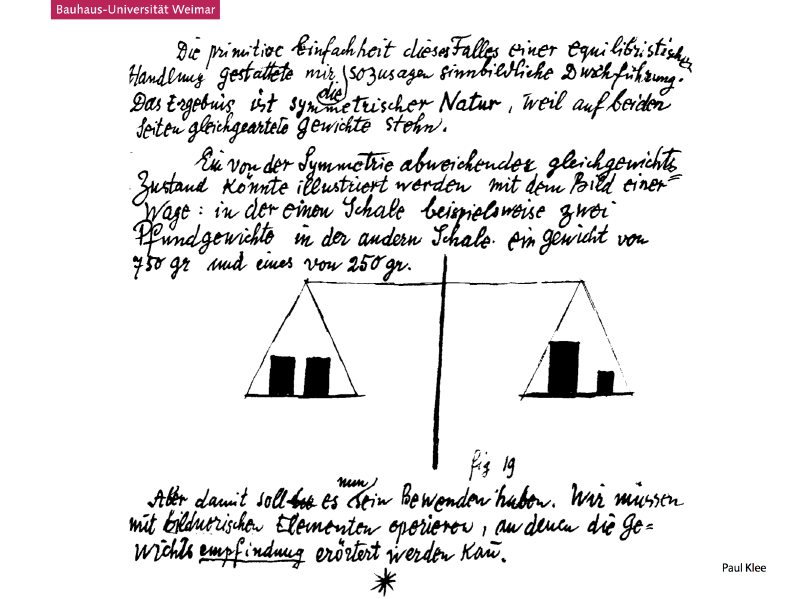 Bauhaus-Universität Weimar
Die primitive Einfachheit dieses Falles einer equilibristischen
Handlung gestattete mir die sozusagen sinnbildliche Durchführung.
Das Ergebnis ist symmetrischer Natur, weil auf beiden
Seiten gleichgeartete Gewichte stehn.
Ein von der Symmetrie abweichender gleichgewichts-
Zustand könnte illustriert werden mit dem Bild einer
Wage: in der einen Schale beispielsweise zwei
Pfundgewichte in der andern Schale ein gewicht von
750 gr und eines von 250 gr.
fig 19
Aber damit soll es nun sein Bewenden haben. Wir müssen
mit bildnerischen Elementen operieren, an denen die Ge=
wichtsempfindung erörtert werden kañ.
Paul Klee